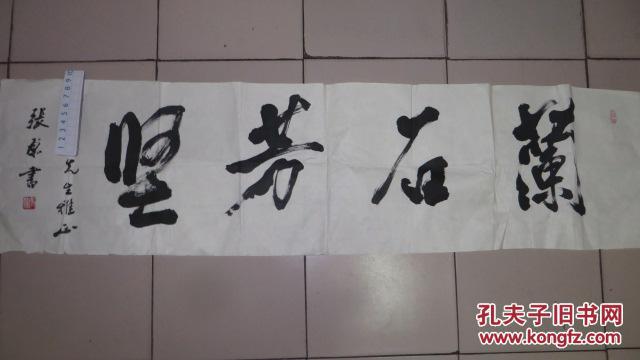 蘭石芳堅
先生雅正
張
書
1 2 3 4 5 6 7 8 9 10
孔夫子旧书网
www.kongfz.com